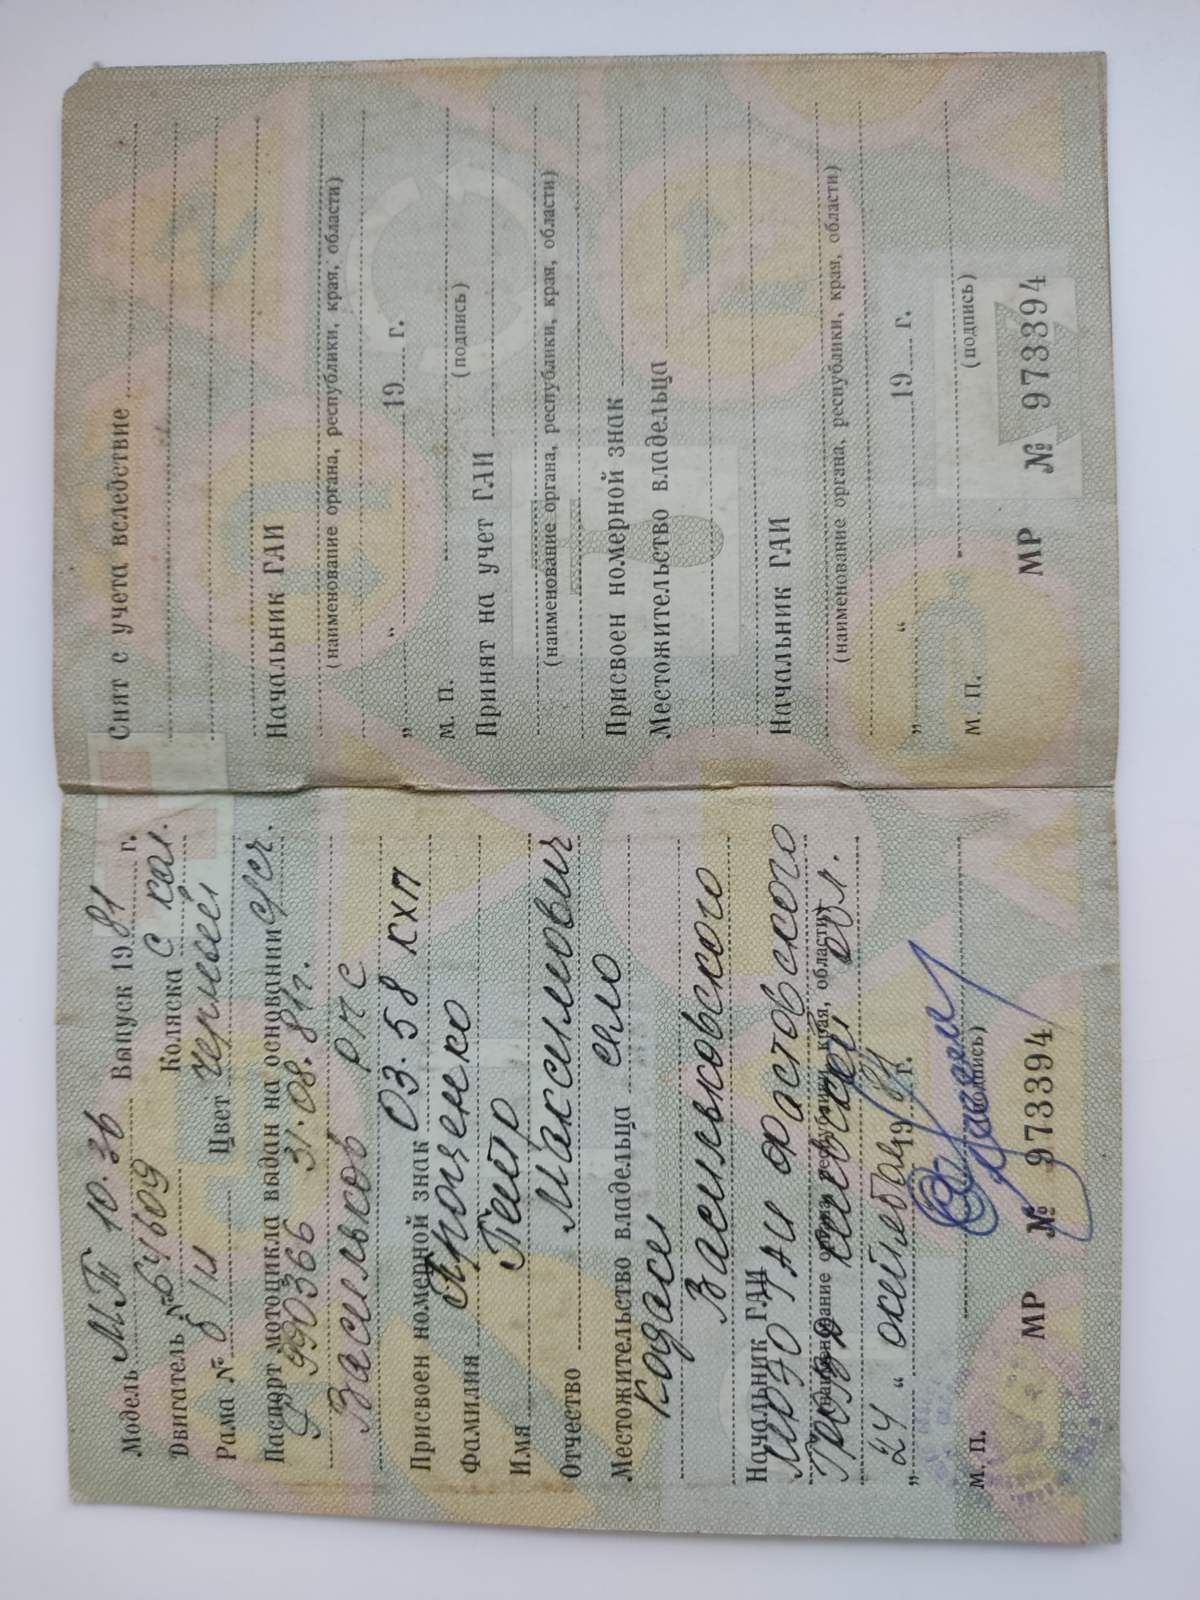 Модель М.Т 10.36 Выпуск 1981 г.
Двигатель № 64609 Коляска с кол.
Рама № б/н Цвет черный
Паспорт мотоцикла выдан на основании
990366 31.08.81г.
Васильков
Присвоен номерной знак 03.58 КХП
Фамилия Проценко
Имя Петр
Отчество Максимович
Местожительство владельца село
Кодаки
Васильковского
Начальник ГАИ
МРЭО ГАИ Фастовского
(наименование органа, республики, края, области)
РОВД Киевской обл.
„24“ октября 19 г.
(подпись)
М. П.
МР № 973394
Снят с учета вследствие
Начальник ГАИ
(наименование органа, республики, края, области)
„ “ 19 г.
М. П. (подпись)
Принят на учет ГАИ
(наименование органа, республики, края, области)
Присвоен номерной знак
Местожительство владельца
Начальник ГАИ
(наименование органа, республики, края, области)
„ “ 19 г.
М. П. (подпись)
МР № 973394